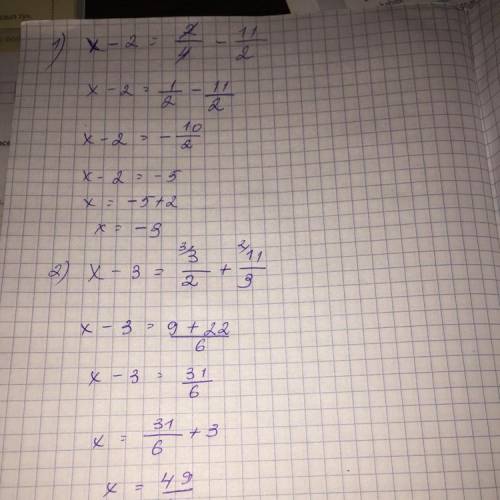 1) x - 2 = 2/4 - 11/2
x - 2 = 1/2 - 11/2
x - 2 = - 10/2
x - 2 = -5
x = -5+2
x = -3
2) x - 3 = 3/2 3) + 11/3 2)
x - 3 = (9 + 22)/6
x - 3 = 31/6
x = 31/6 + 3
x = 49